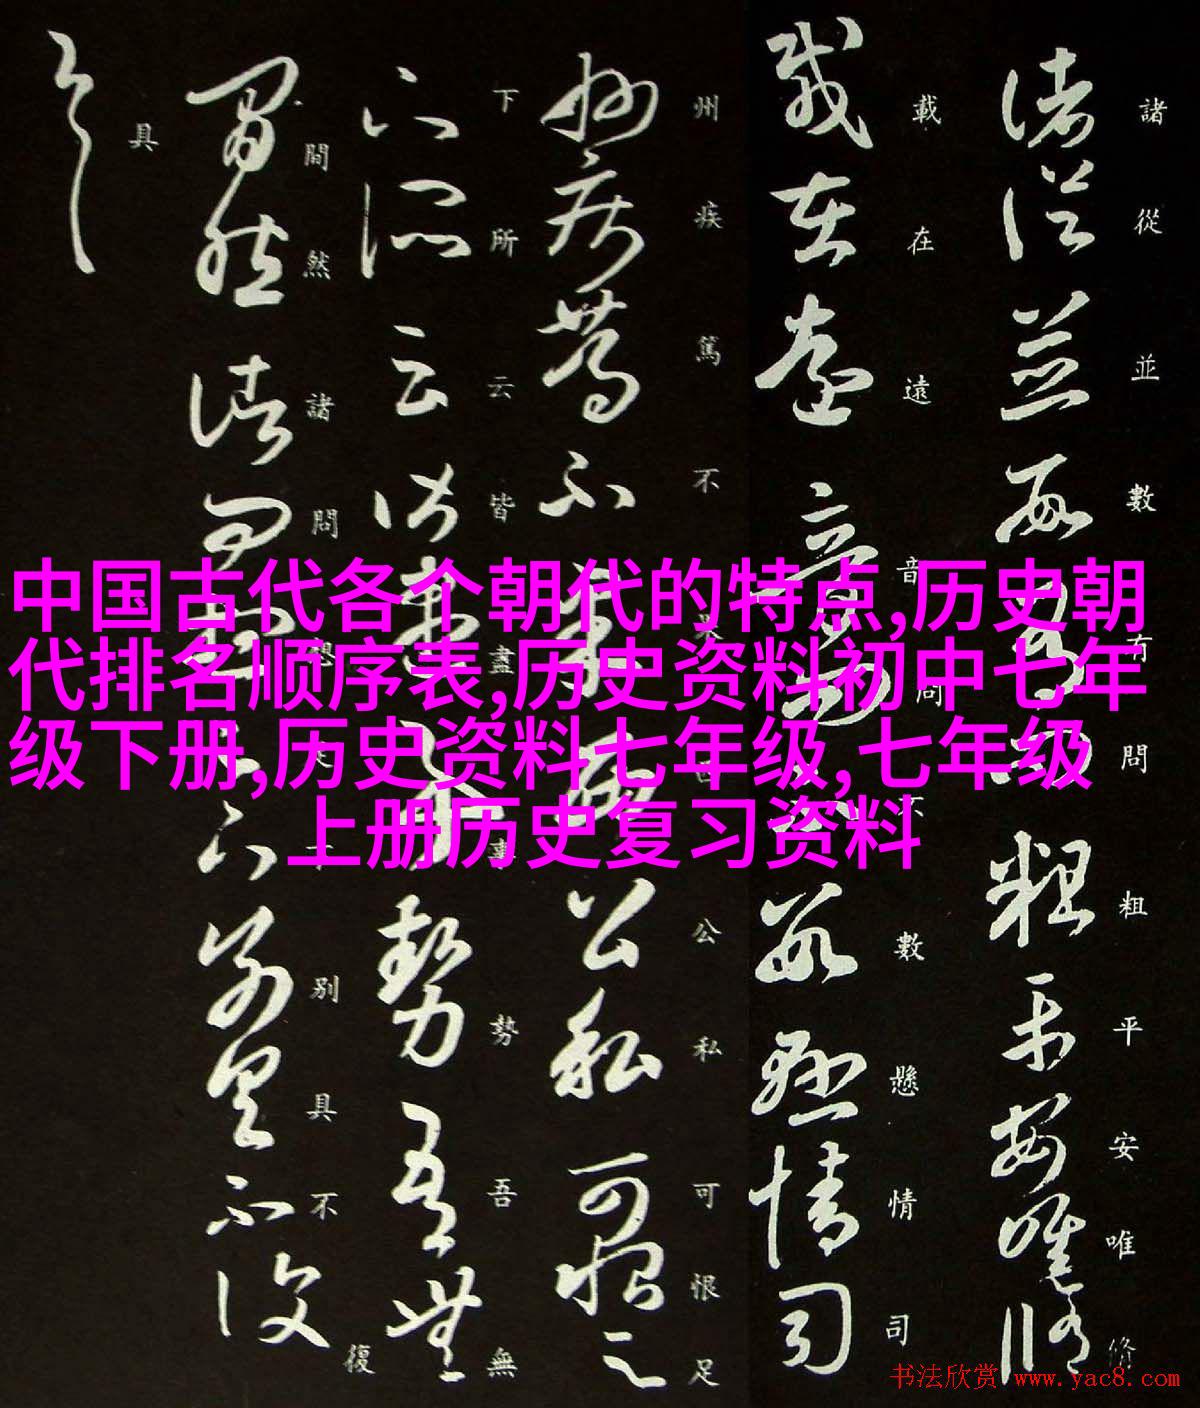 諸從並數有問粗平安唯脩
載在遠音問不數懸情司
州疾篤不公私可恨足
下所云皆盡事勢吾無
間然諸問想不別具不復
具
中国古代各个朝代的特点,历史朝
代排名顺序表,历史资料初中七年
级下册,历史资料七年级,七年级
上册历史复习资料
书法欣赏 www.yac8.com